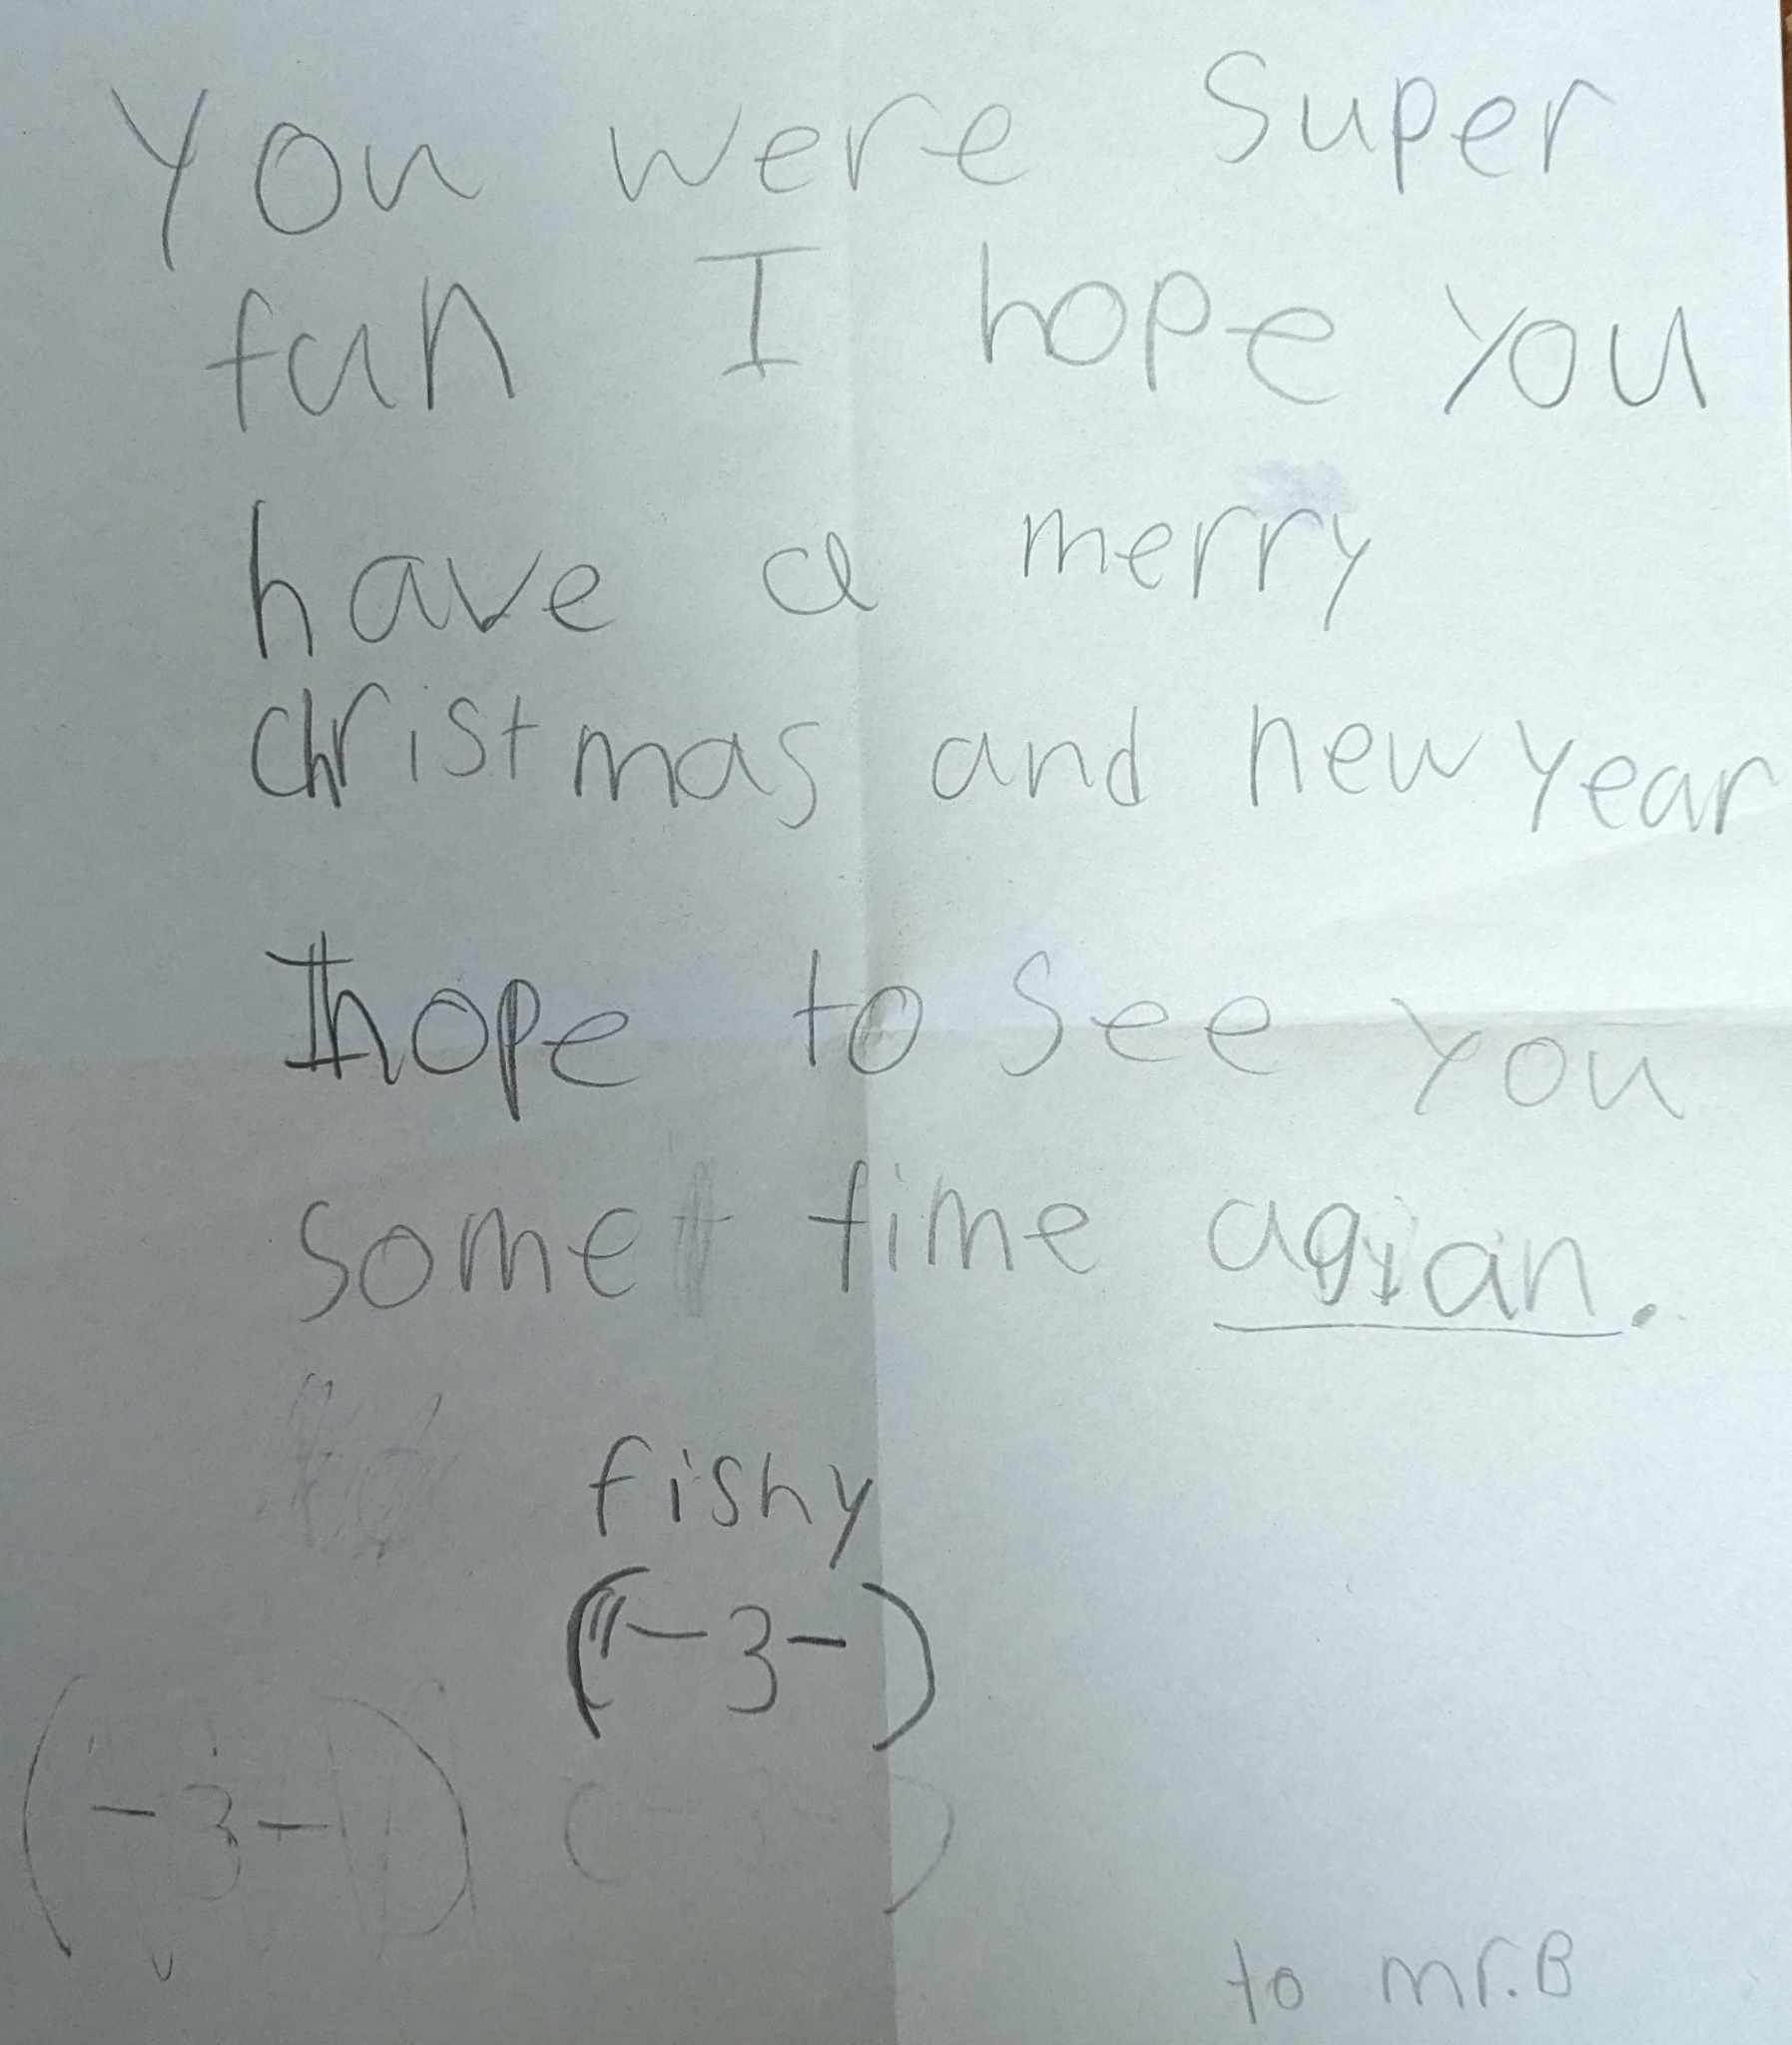 You were super
fun I hope you
have a merry
christmas and new year
I hope to see you
some time agian.
fishy
(-3-)
(-3-) (-3-)
to mr.B